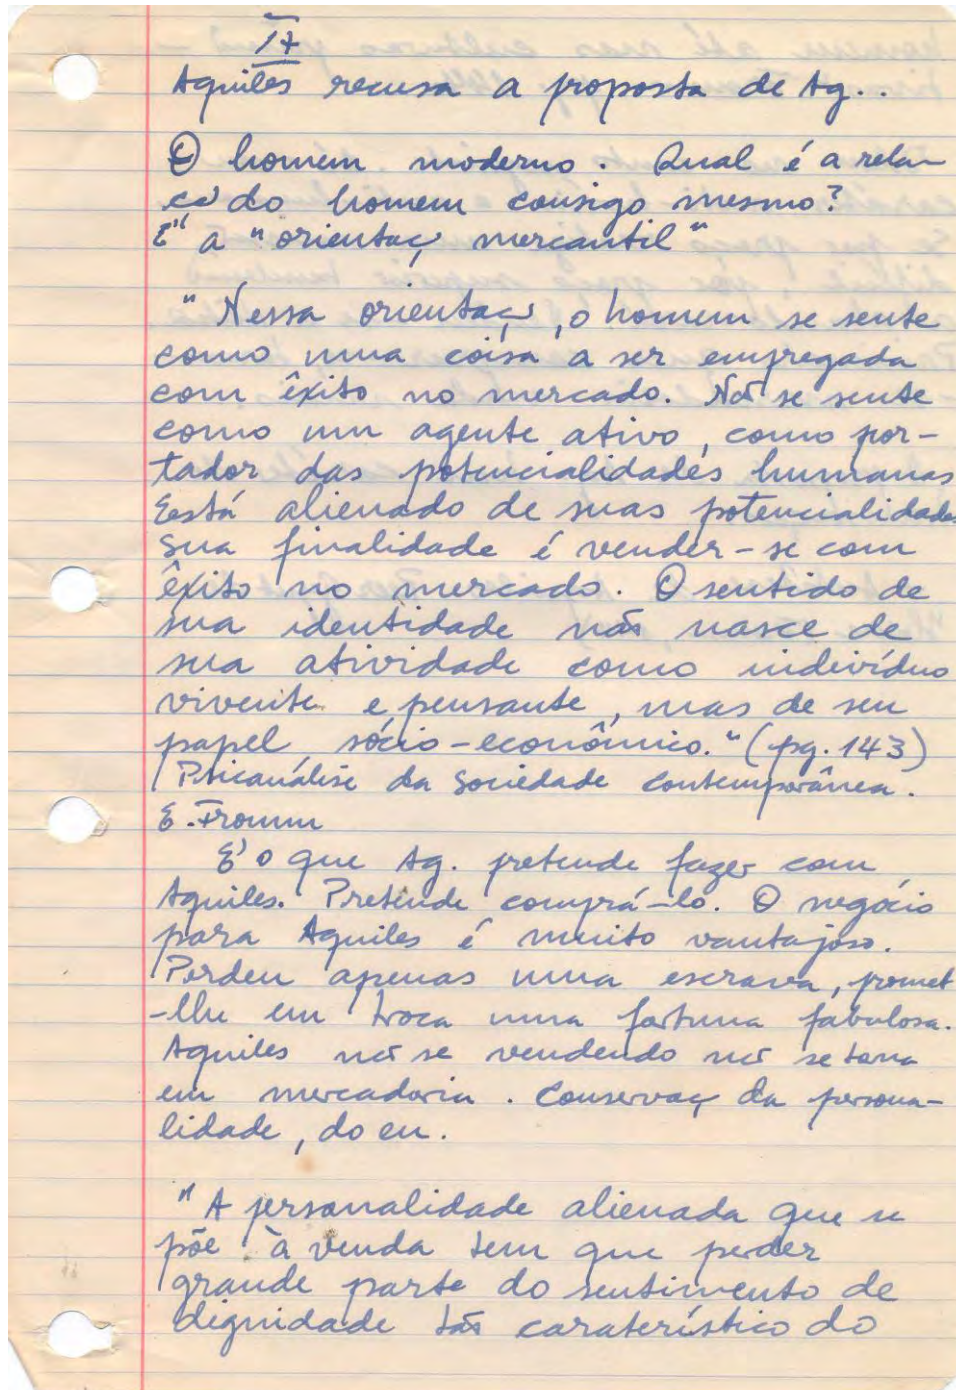 IX
Aquiles recusa a proposta de Ag..
O homem moderno. Qual é a rela-
çº do homem consigo mesmo?
É a "orientaç mercantil"
"Nessa orientaç, o homem se sente
como uma coisa a ser empregada
com êxito no mercado. Nã se sente
como um agente ativo, como por-
tador das potencialidades humanas
Está alienado de suas potencialidades
Sua finalidade é vender-se com
êxito no mercado. O sentido de
sua identidade não nasce de
sua atividade como indivíduo
vivente e pensante, mas de seu
papel sócio-econômico." (pg. 143)
Psicanálise da Sociedade Contemporânea.
E. Fromm
É o que Ag. pretende fazer com
Aquiles. Pretende comprá-lo. O negócio
para Aquiles é muito vantajoso.
Perdeu apenas uma escrava, promet
-lhe em troca uma fortuna fabulosa.
Aquiles nã se vendendo nã se torna
em mercadoria. Conservaç da persona-
lidade, do eu.
"A personalidade alienada que se
põe à venda tem que perder
grande parte do sentimento de
dignidade tão caraterístico do